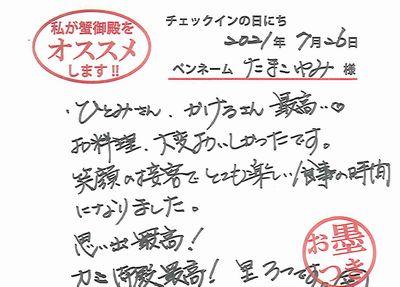 私が蟹御殿を
オススメ
します!!
チェックインの日にち
2021年 7月26日
ペンネーム たまごやみ 様
・ひとみさん、かけるさん 最高..♡
お料理、大変おいしかったです。
笑顔の接客でとても楽しい食事の時間
になりました。
思い出最高!
カニ御殿最高! 星 5つです。
お墨
つき